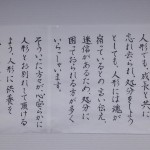 人形でも、成長と共に
忘れ去られ、処分をしよう
としても、人形には魂が
宿っているとの言い伝え、
迷信があるため、処分に
困っておられる方が多く
いらっしゃいます。
そういった方々が、心安らかに
人形とお別れして頂ける
よう、人形に供養を